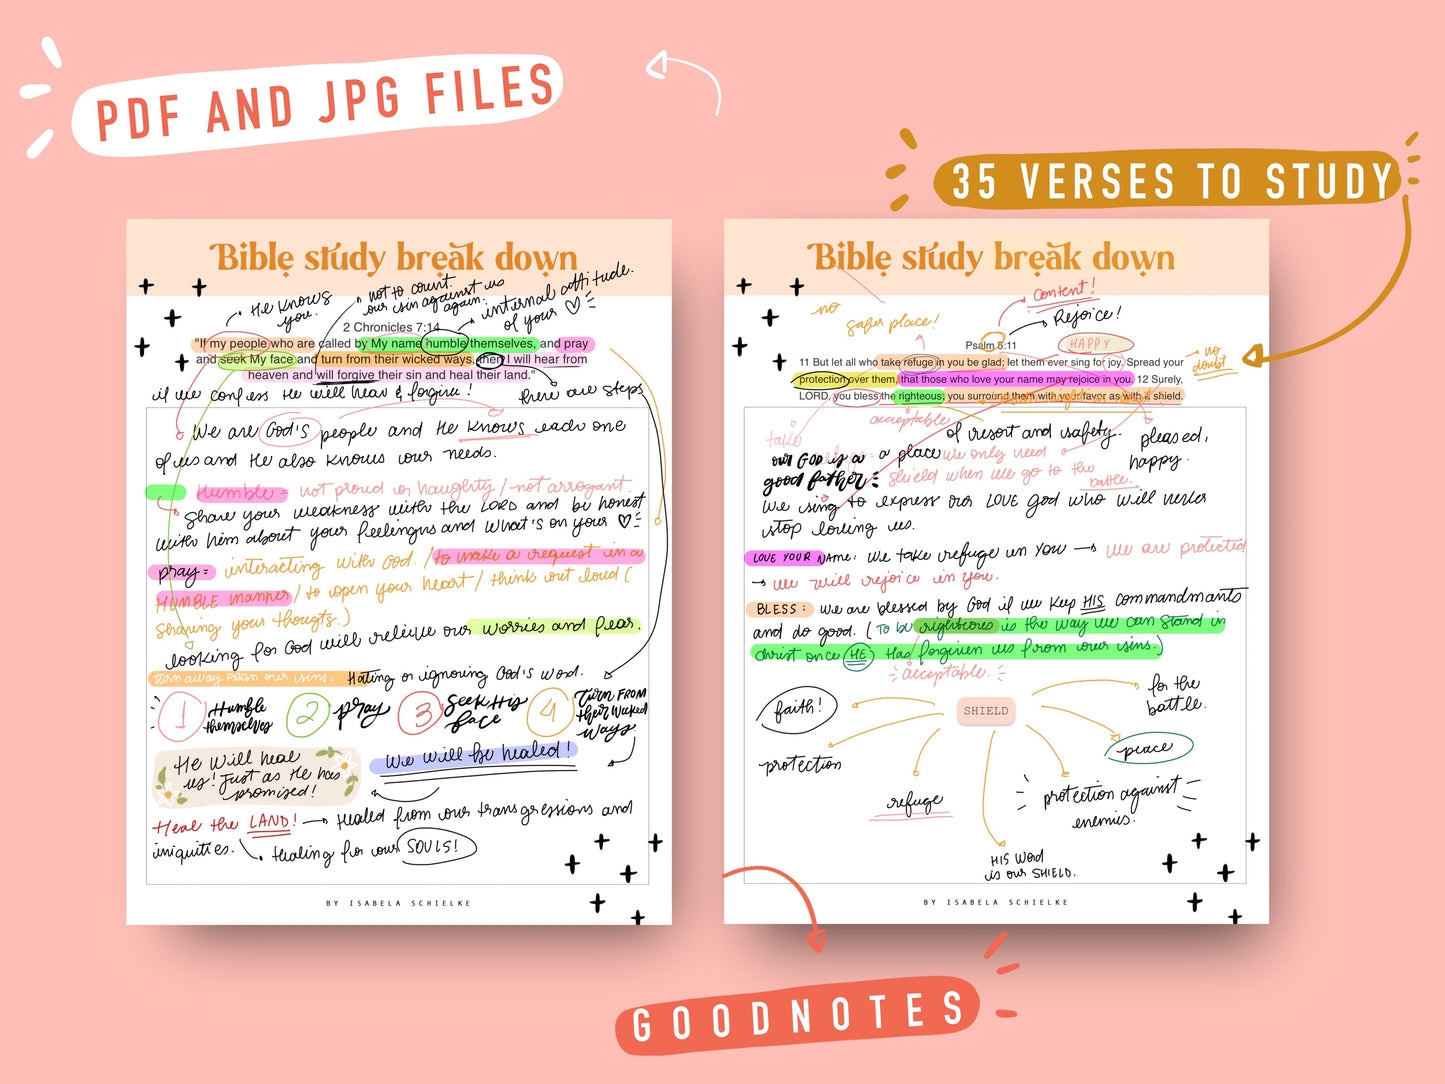 PDF AND JPG FILES
35 VERSES TO STUDY
Bible study break down
He knows you.
not to count our sin against us again.
internal attitude of your
2 Chronicles 7:14
"If my people who are called by My name humble themselves, and pray
and seek My face and turn from their wicked ways, then I will hear from
heaven and will forgive their sin and heal their land."
if we confess He will hear & forgive!
there are steps
We are GOD'S people and He knows each one
of us and He also knows our needs.
Humble = not proud or haughty / not arrogant.
Share your weakness with the LORD and be honest
with him about your feelings and what's on your
pray= interacting with God. / to make a request in a
HUMBLE manner / to open your heart / think out loud (
Sharing your thougts.)
looking for God will relieve our worries and fear.
turn away from our sins: Hating or ignoring God's word.
1 Humble themselves
2 pray
3 Seek His face
4 Turn FROM their wicked ways
He will heal
us! Just as He has
promised!
We will be healed!
Heal the LAND! → Healed from our transgressions and
iniquities.
Healing for our SOULS!
BY ISABELA SCHIELKE
Bible study break down
no safer place!
Content!
Rejoice!
Psalm 5:11
HAPPY
11 But let all who take refuge in you be glad; let them ever sing for joy. Spread your
protection over them, that those who love your name may rejoice in you. 12 Surely,
LORD, you bless the righteous; you surround them with your favor as with a shield.
no doubt
acceptable
take
of resort and safety.
pleased, happy.
our GOD is a
good father
= a place we only need
shield when we go to the
battle.
We sing to express our LOVE God who will never
stop loving us.
LOVE YOUR NAME: We take refuge in you → we are protected
→ we will rejoice in you.
BLESS: we are blessed by God if we keep HIS commandmants
and do good. (To be righteous is the way we can stand in
christ once HE Has forgiven us from our sins.)
acceptable.
SHIELD
faith!
for the battle.
protection
peace
refuge
protection against enemis.
HIS Word
is our SHIELD.
BY ISABELA SCHIELKE
GOODNOTES